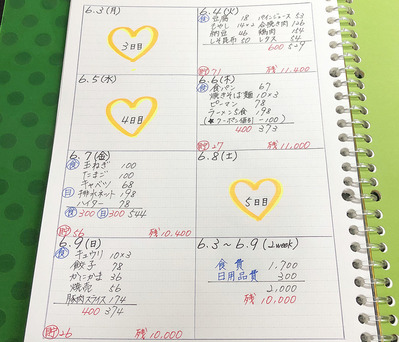 6.3(月)
3日目
6.4(火)
食 豆腐 18 パインジュース 53
もやし 14×2 合挽き肉 126
納豆 46 鶏肉 154
しそ昆布 50 レタス 54
600 529
貯71 残11,400
6.5(水)
4日目
6.6(木)
食 食パン 67
焼きそば麺 10×3
ピーマン 78
ラーメン5食 198
(★クーポン値引 -100)
400 373
貯27 残11,000
6.7(金)
食 玉ねぎ 100
たまご 100
キャベツ 68
日 排水ネット 198
ハイター 78
食300 日300 544
貯56 残10,400
6.8(土)
5日目
6.9(日)
食 キュウリ 10×3
餃子 78
かにかま 36
焼売 56
豚肉スライス 174
400 374
貯26 残10,000
6.3～6.9(2week)
食費 1,700
日用品費 300
2,000
残10,000